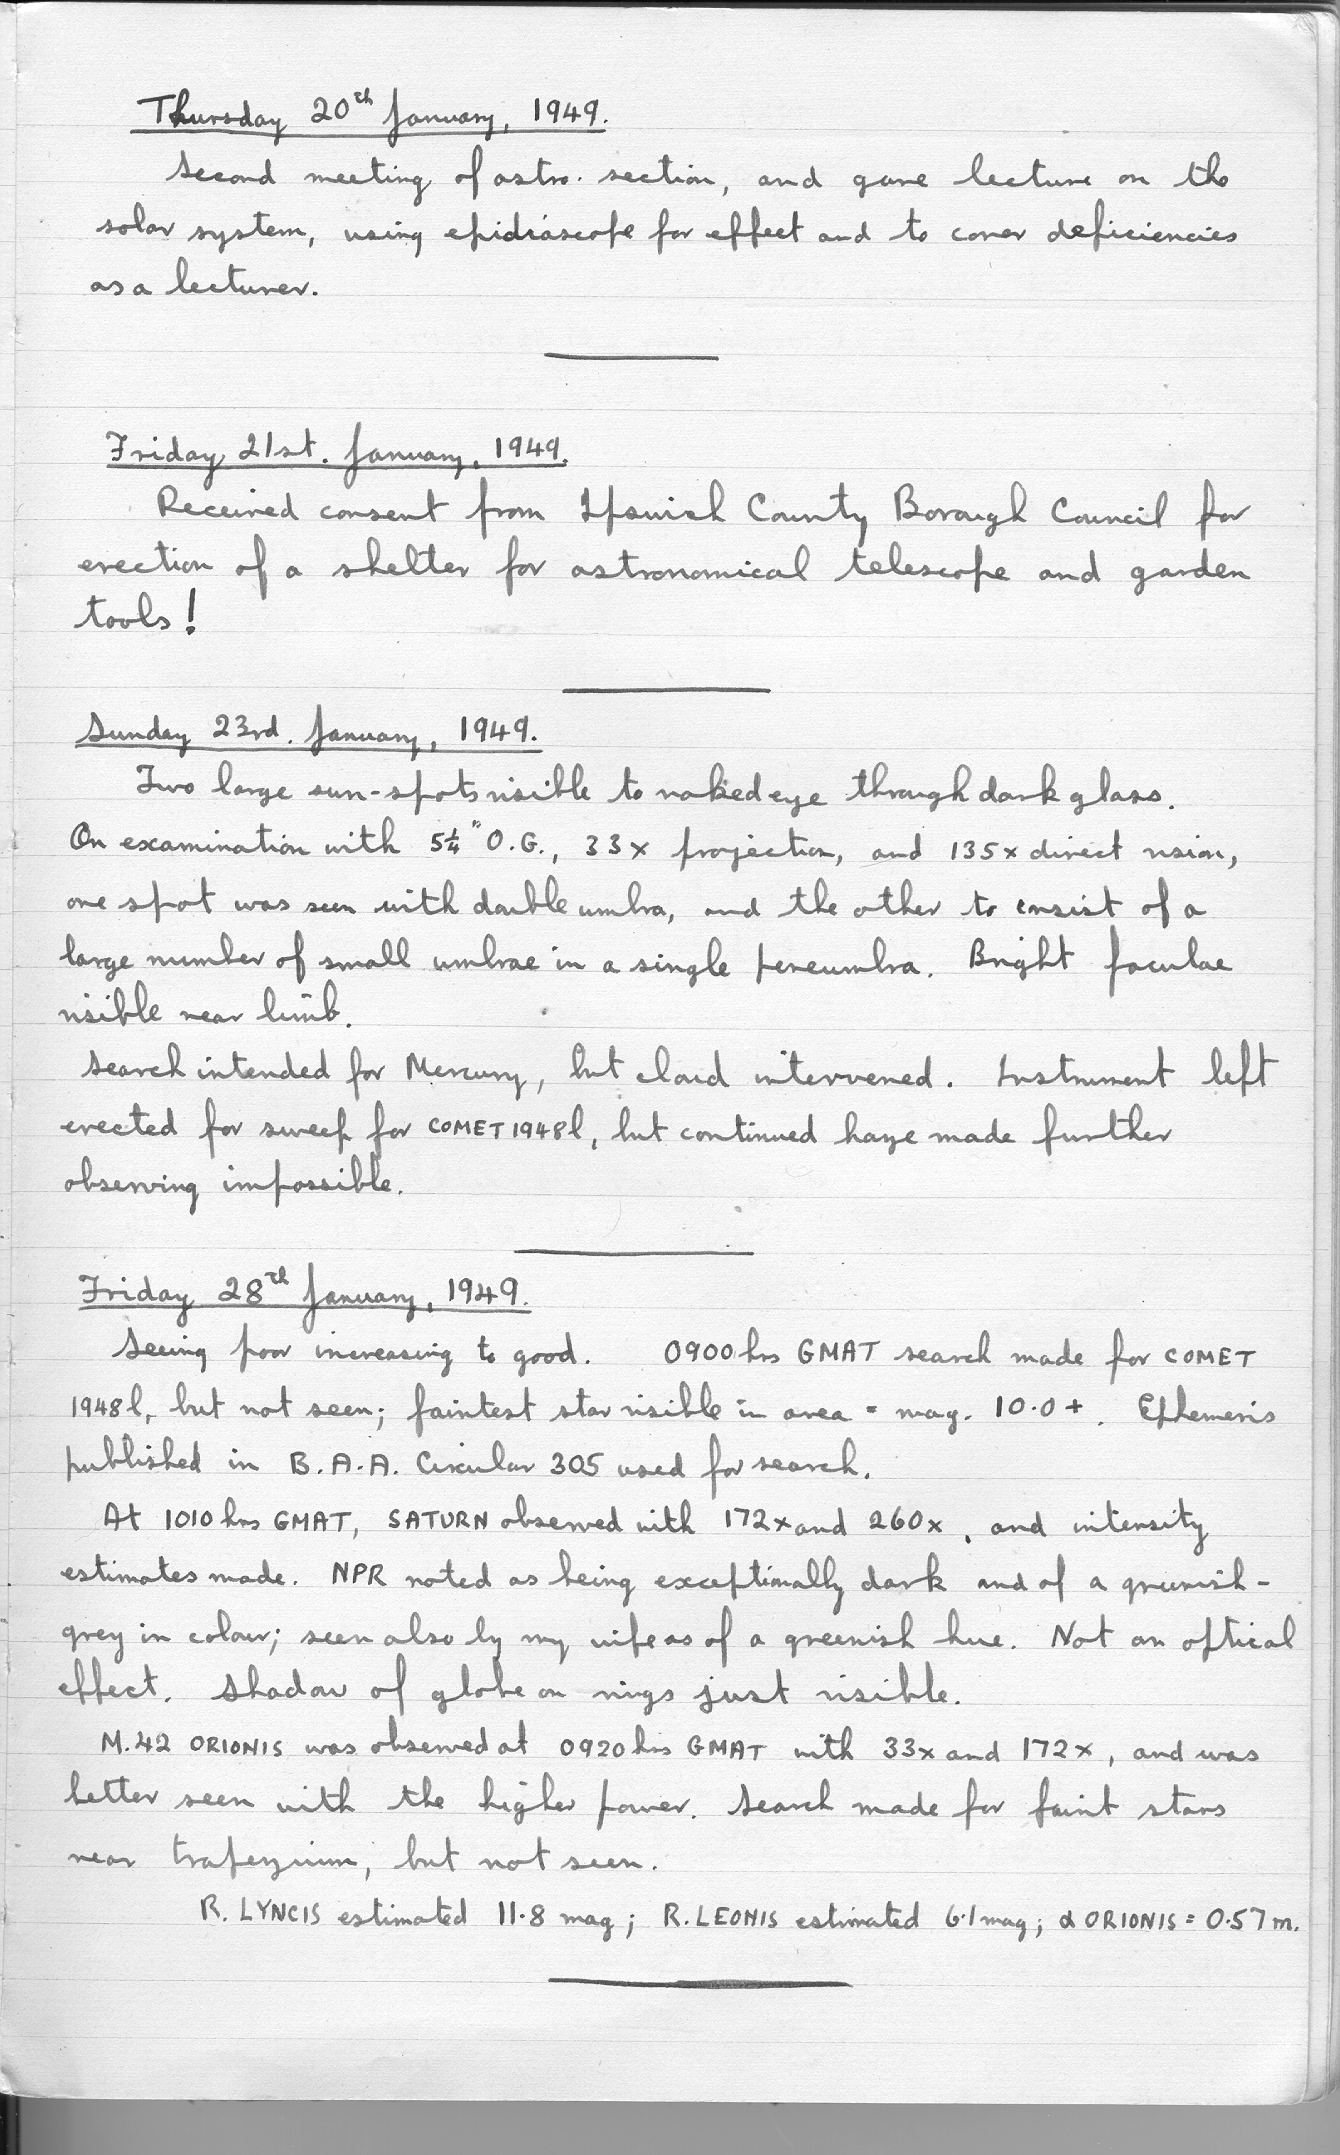 Thursday 20th January, 1949.
Second meeting of astro. section, and gave lecture on the
solar system, using epidiascope for effect and to cover deficiencies
as a lecturer.
Friday 21st. January, 1949.
Received consent from Ipswich County Borough Council for
erection of a shelter for astronomical telescope and garden
tools!
Sunday 23rd. January, 1949.
Two large sun-spots visible to naked eye through dark glass.
On examination with 5¼" O.G., 33x projection, and 135x direct vision,
one spot was seen with double umbra, and the other to consist of a
large number of small umbrae in a single penumbra. Bright faculae
visible near limb.
Search intended for Mercury, but cloud intervened. Instrument left
erected for sweep for COMET 1948l, but continued haze made further
observing impossible.
Friday 28th January, 1949.
Seeing poor increasing to good. 0900 hrs GMAT search made for COMET
1948l, but not seen; faintest star visible in area = mag. 10.0+. Ephemeris
published in B.A.A. Circular 305 used for search.
At 1010 hrs GMAT, SATURN observed with 172x and 260x, and intensity
estimates made. NPR noted as being exceptionally dark and of a greenish-
grey in colour; seen also by my wife as of a greenish hue. Not an optical
effect. Shadow of globe on rings just visible.
M.42 ORIONIS was observed at 0920 hrs GMAT with 33x and 172x, and was
better seen with the higher power. Search made for faint stars
near trapezium, but not seen.
R. LYNCIS estimated 11.8 mag; R. LEONIS estimated 6.1 mag; α ORIONIS = 0.57 m.